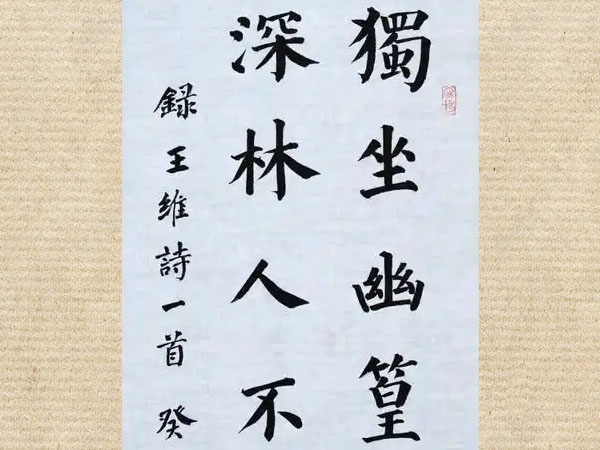 獨坐幽篁
深林人不
録王維詩一首 癸